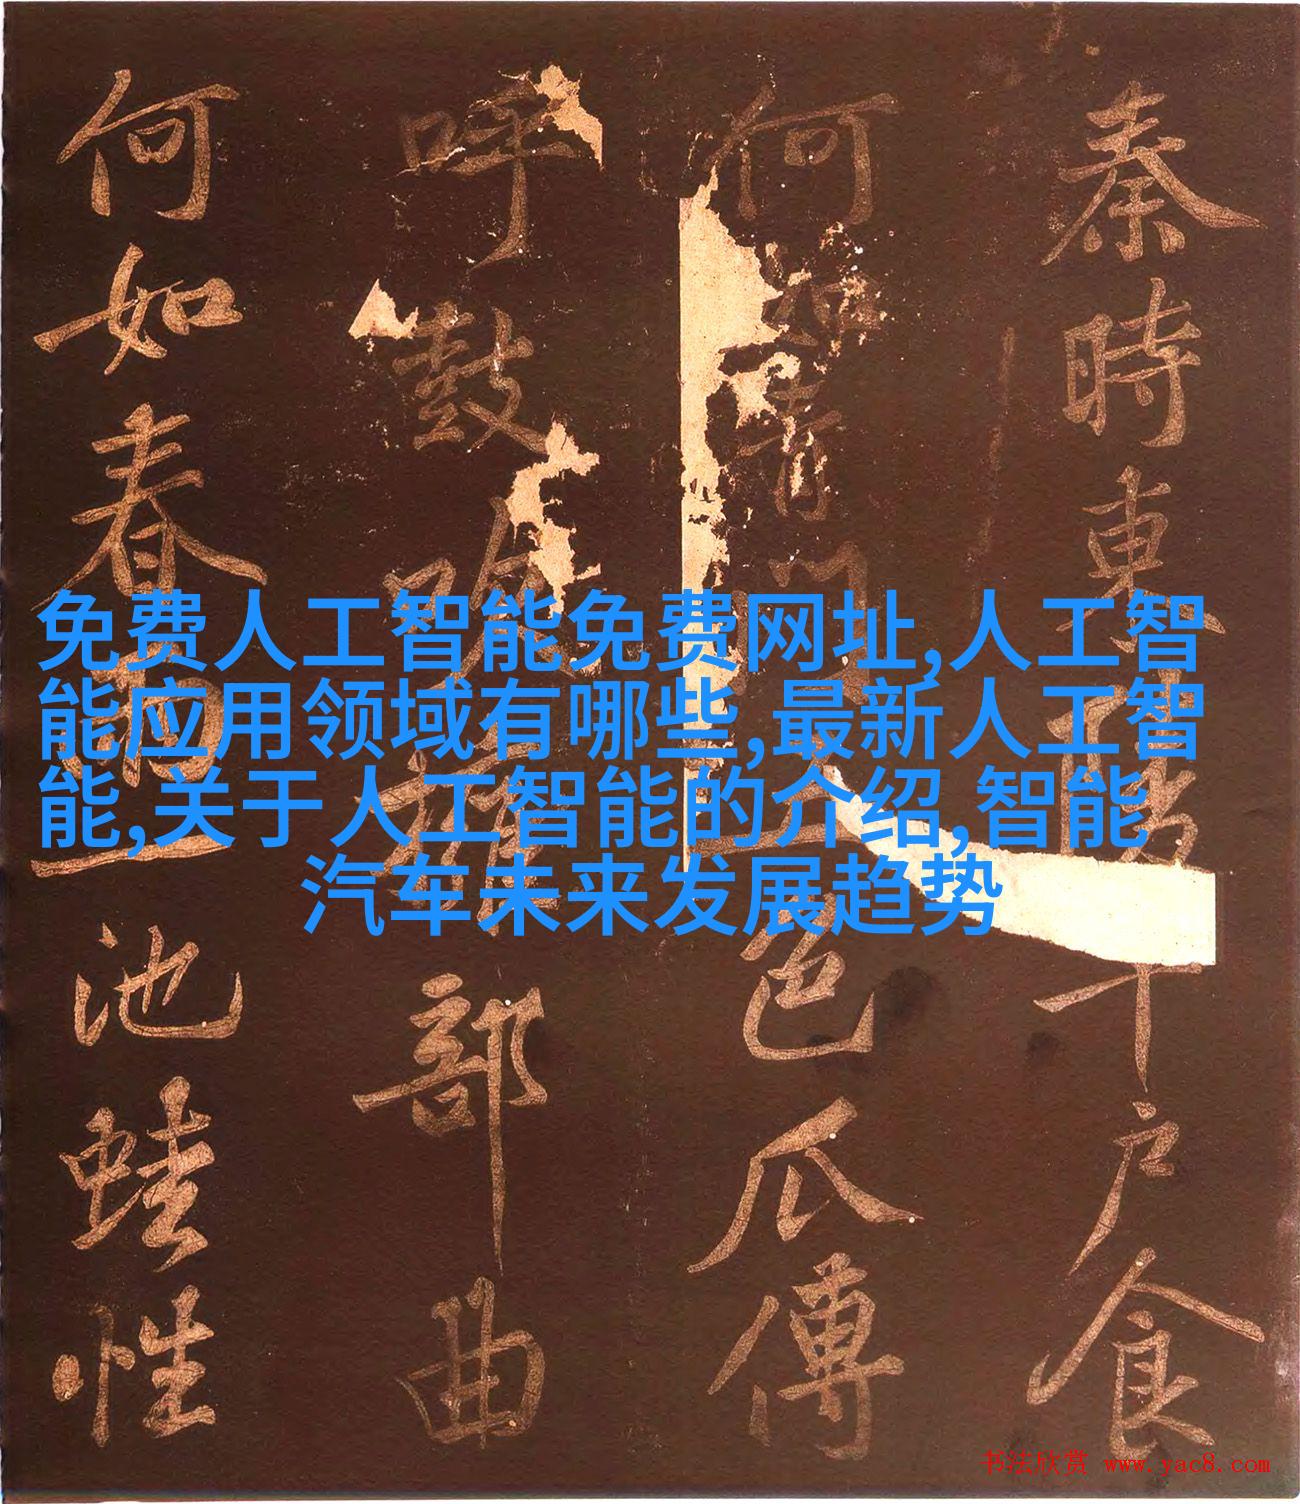 秦時東陵千戶食
何如青門五色瓜傳
呼鼓吹擁部曲
何如春雨一池蛙性
免费人工智能免费网址,人工智
能应用领域有哪些,最新人工智
能,关于人工智能的介绍,智能
汽车未来发展趋势
书法欣赏 www.yac8.com